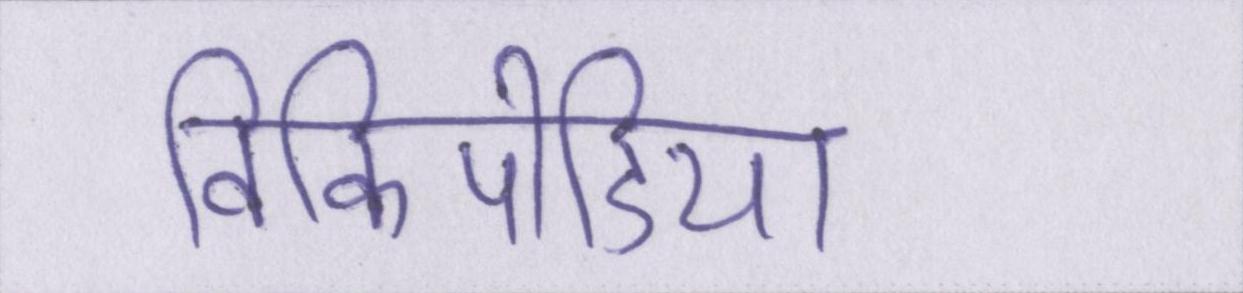 विकिपीडिया